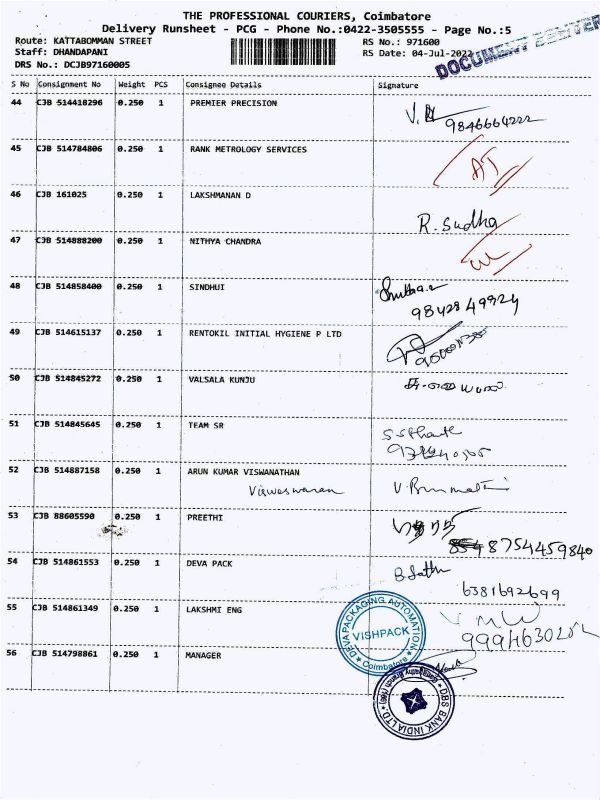 THE PROFESSIONAL COURIERS, Coimbatore
Delivery Runsheet - PCG - Phone No.:0422-3505555 - Page No.:5
Route: KATTABOMMAN STREET RS No.: 971600
Staff: DHANDAPANI RS Date: 04-Jul-2022
DRS No.: DCJB97160005
DOCUMENT CENTER
S No Consignment No Weight PCS Consignee Details Signature
44 CJB 514418296 0.250 1 PREMIER PRECISION
9846664222
45 CJB 514784806 0.250 1 RANK METROLOGY SERVICES
46 CJB 161025 0.250 1 LAKSHMANAN D R. Sudha
47 CJB 514888200 0.250 1 NITHYA CHANDRA
48 CJB 514858400 0.250 1 SINDHUI
9842849924
49 CJB 514615137 0.250 1 RENTOKIL INITIAL HYGIENE P LTD
50 CJB 514845272 0.250 1 VALSALA KUNJU
51 CJB 514845645 0.250 1 TEAM SR
52 CJB 514887158 0.250 1 ARUN KUMAR VISWANATHAN
Visweswaran
53 CJB 88605590 0.250 1 PREETHI
8754459840
54 CJB 514861553 0.250 1 DEVA PACK
6381692699
55 CJB 514861349 0.250 1 LAKSHMI ENG
DEVA PACKAGING AUTOMATION
VISHPACK
Coimbatore
56 CJB 514798861 0.250 1 MANAGER
DBS BANK INDIA LTD.